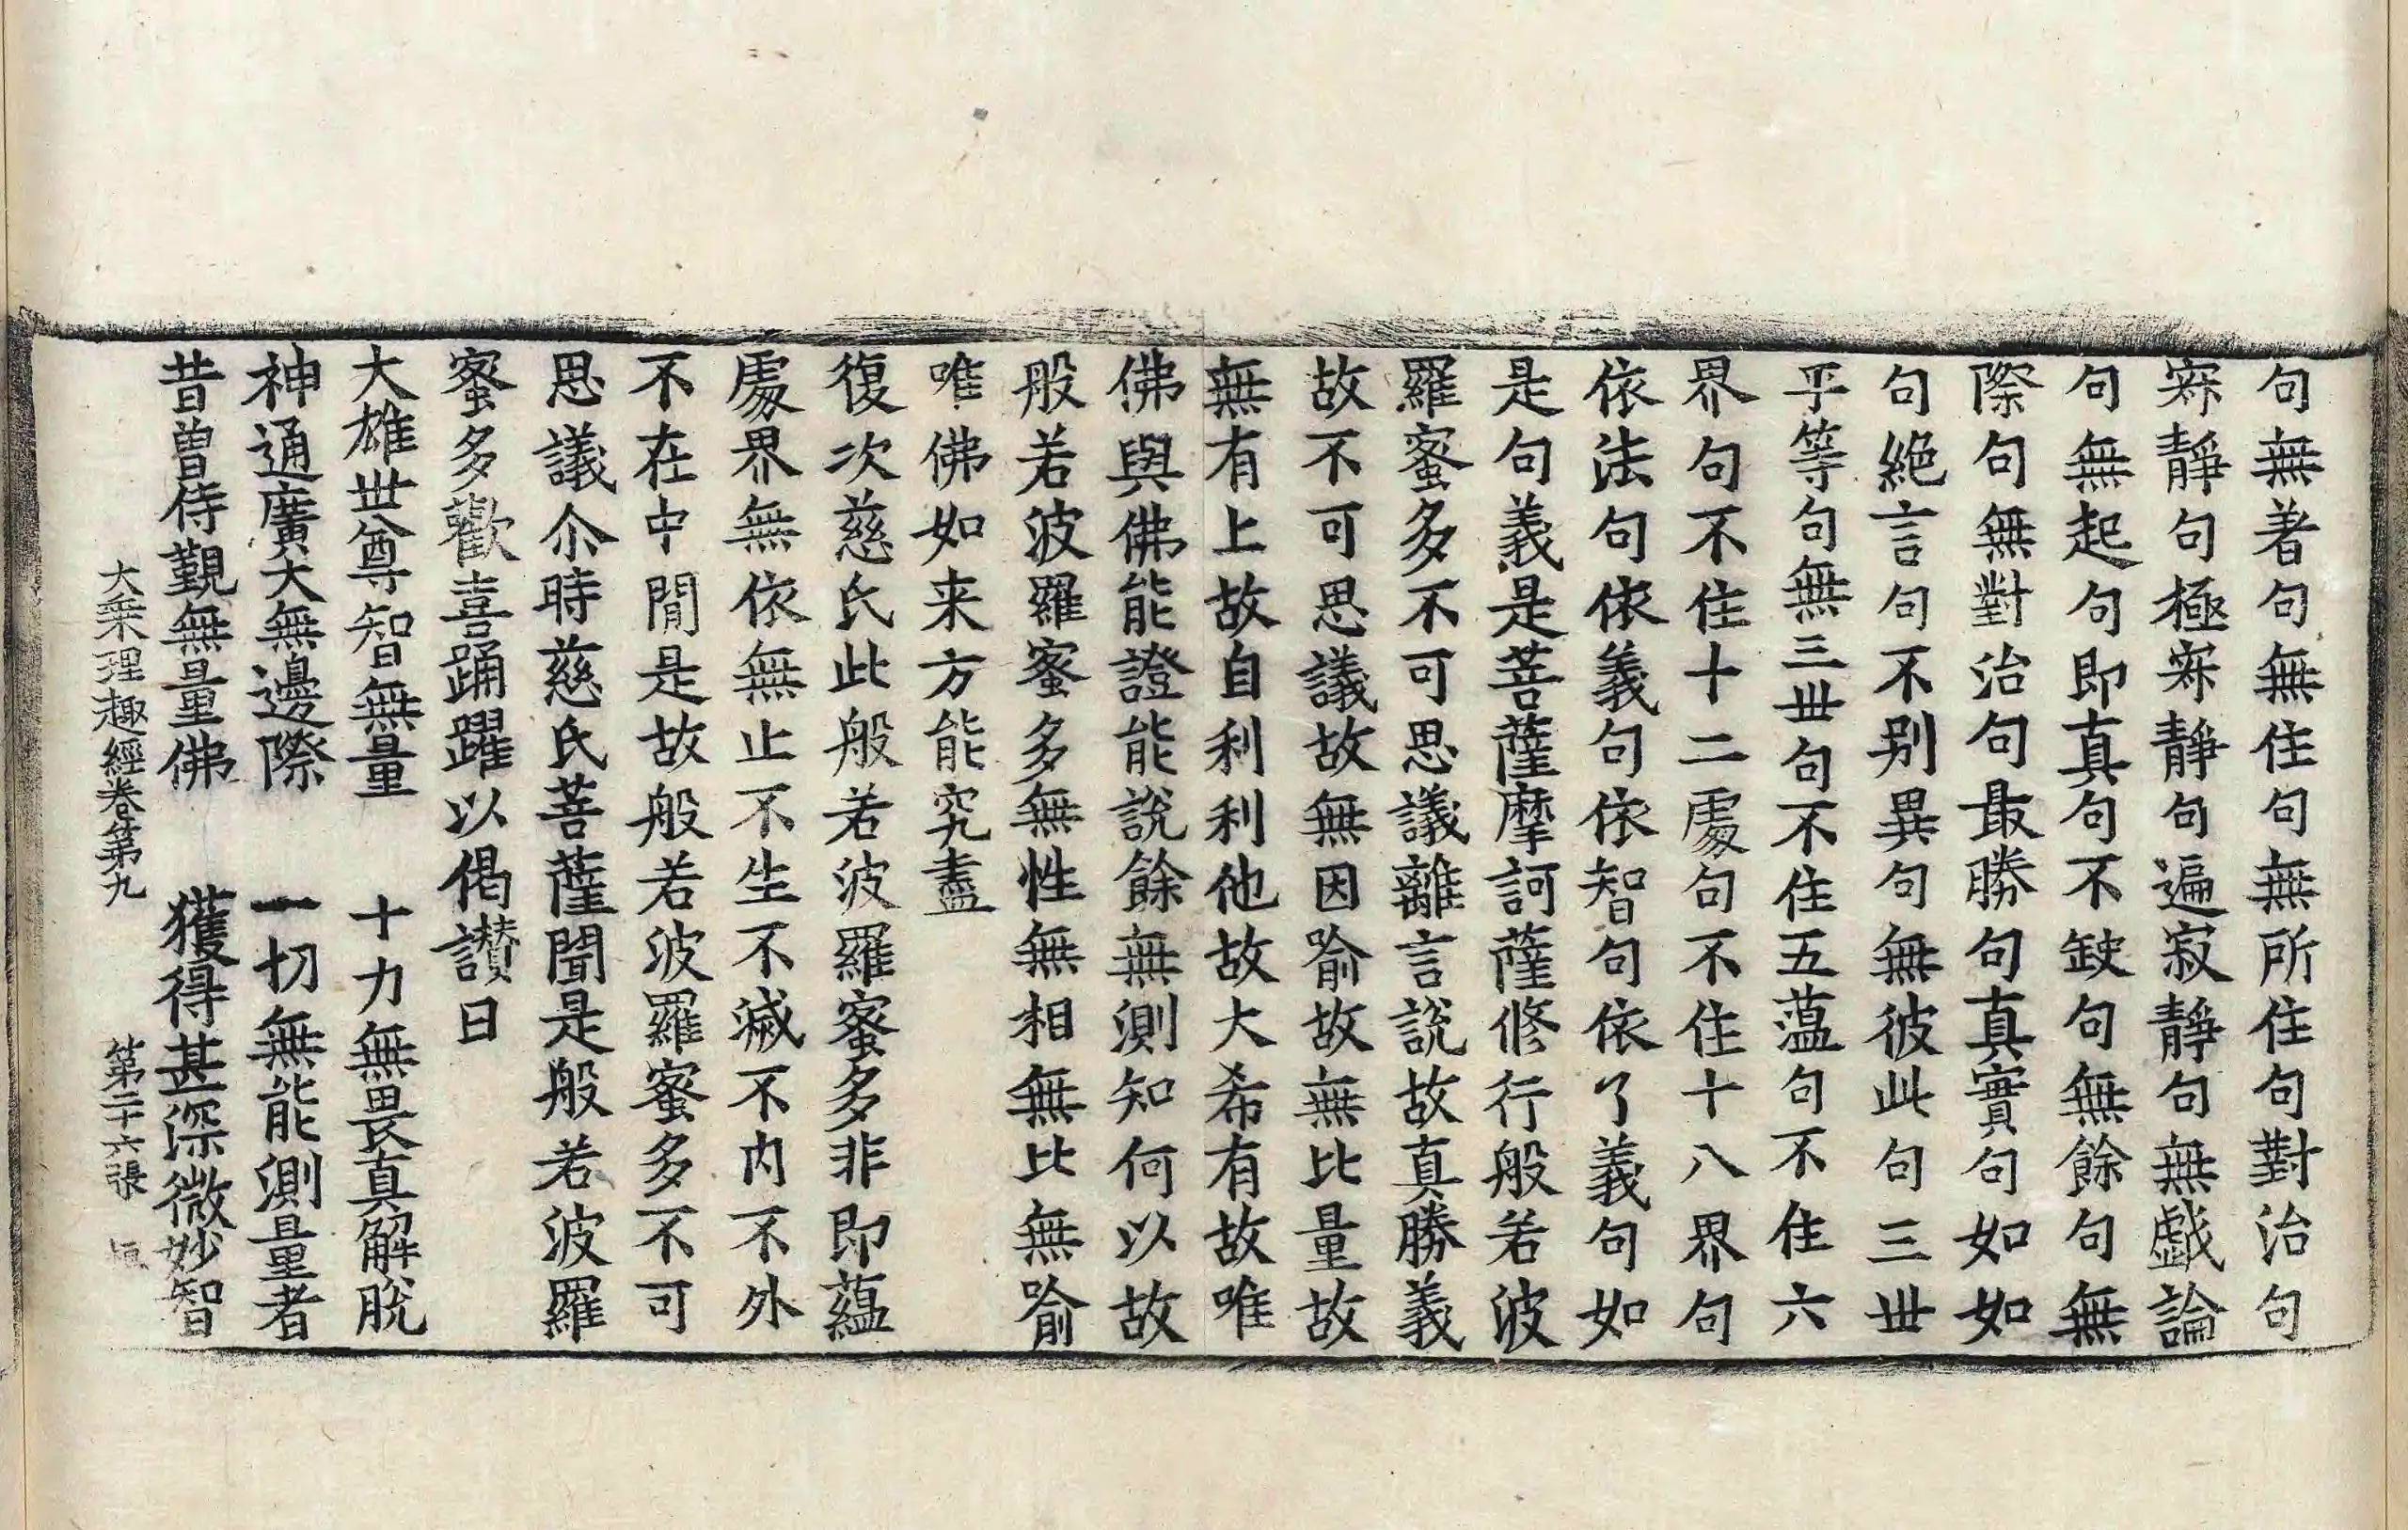 句無著句無住句無所住句對治句
寂靜句極寂靜句遍寂靜句無戲論
句無起句即真句不缺句無餘句無
際句無對治句最勝句真實句如如
句絕言句不别異句無彼此句三世
平等句無三世句不住五蕴句不住六
界句不住十二處句不住十八界句
依法句依義句依智句依了義句如
是句義是菩薩摩訶薩修行般若波
羅蜜多不可思議離言說故真勝義
故不可思議故無因喻故無比量故
無有上故自利利他故大希有故唯
佛與佛能證能說餘無測知何以故
般若波羅蜜多無性無相無比無喻
唯佛如来方能究盡
復次慈氏此般若波羅蜜多非即蕴
處界無依無止不生不滅不内不外
不在中間是故般若波羅蜜多不可
思議尒時慈氏菩薩聞是般若波羅
蜜多歡喜踊躍以偈讃曰
大雄世尊智無量　十力無畏真解脫
神通廣大無邊際　一切無能測量者
昔曾侍覲無量佛　獲得甚深微妙智
大乘理趣經卷第九　第二十六張　垣